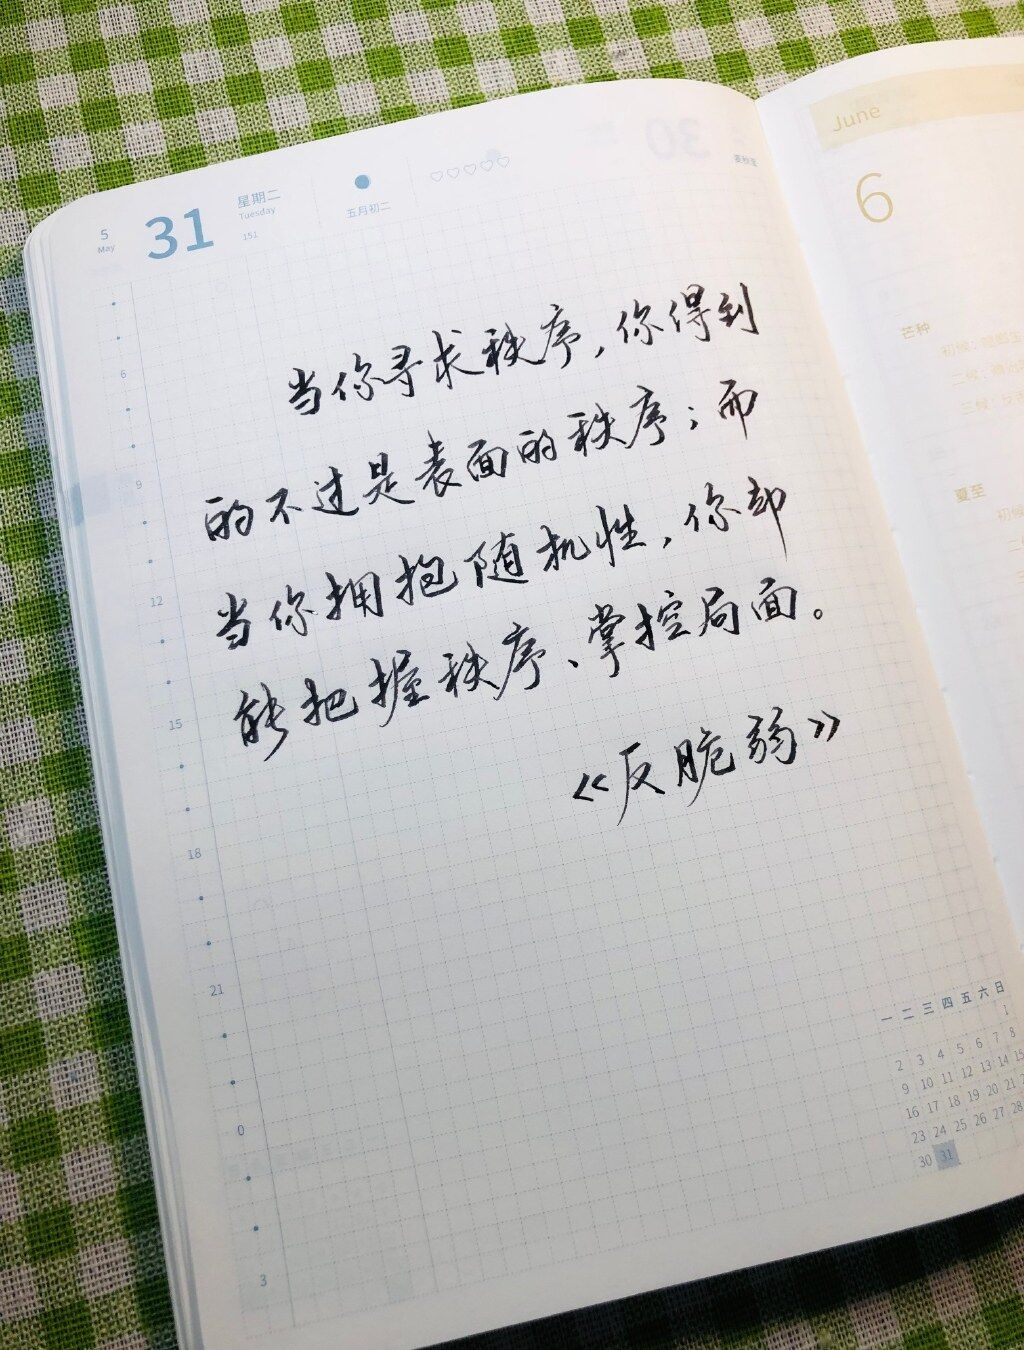 5
May
31
星期二
Tuesday
151
五月初二
♡♡♡♡♡
当你寻求秩序，你得到
的不过是表面的秩序；而
当你拥抱随机性，你却
能把握秩序、掌控局面。
《反脆弱》
6
9
12
15
18
21
0
3
一 二 三 四 五 六 日
1
2 3 4 5 6 7 8
9 10 11 12 13 14 15
16 17 18 19 20 21
23 24 25 26 27 28
30 31
June
6
芒种
初候：
二候：
三候：
夏至
初候